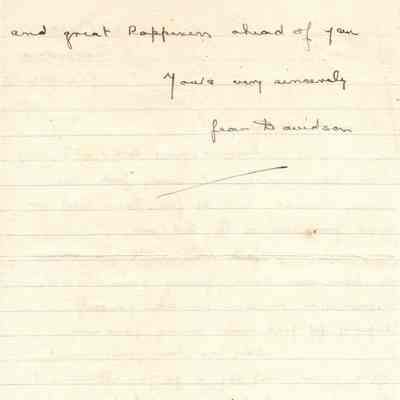 and great happiness ahead of you
Yours very sincerely
Jean Davidson